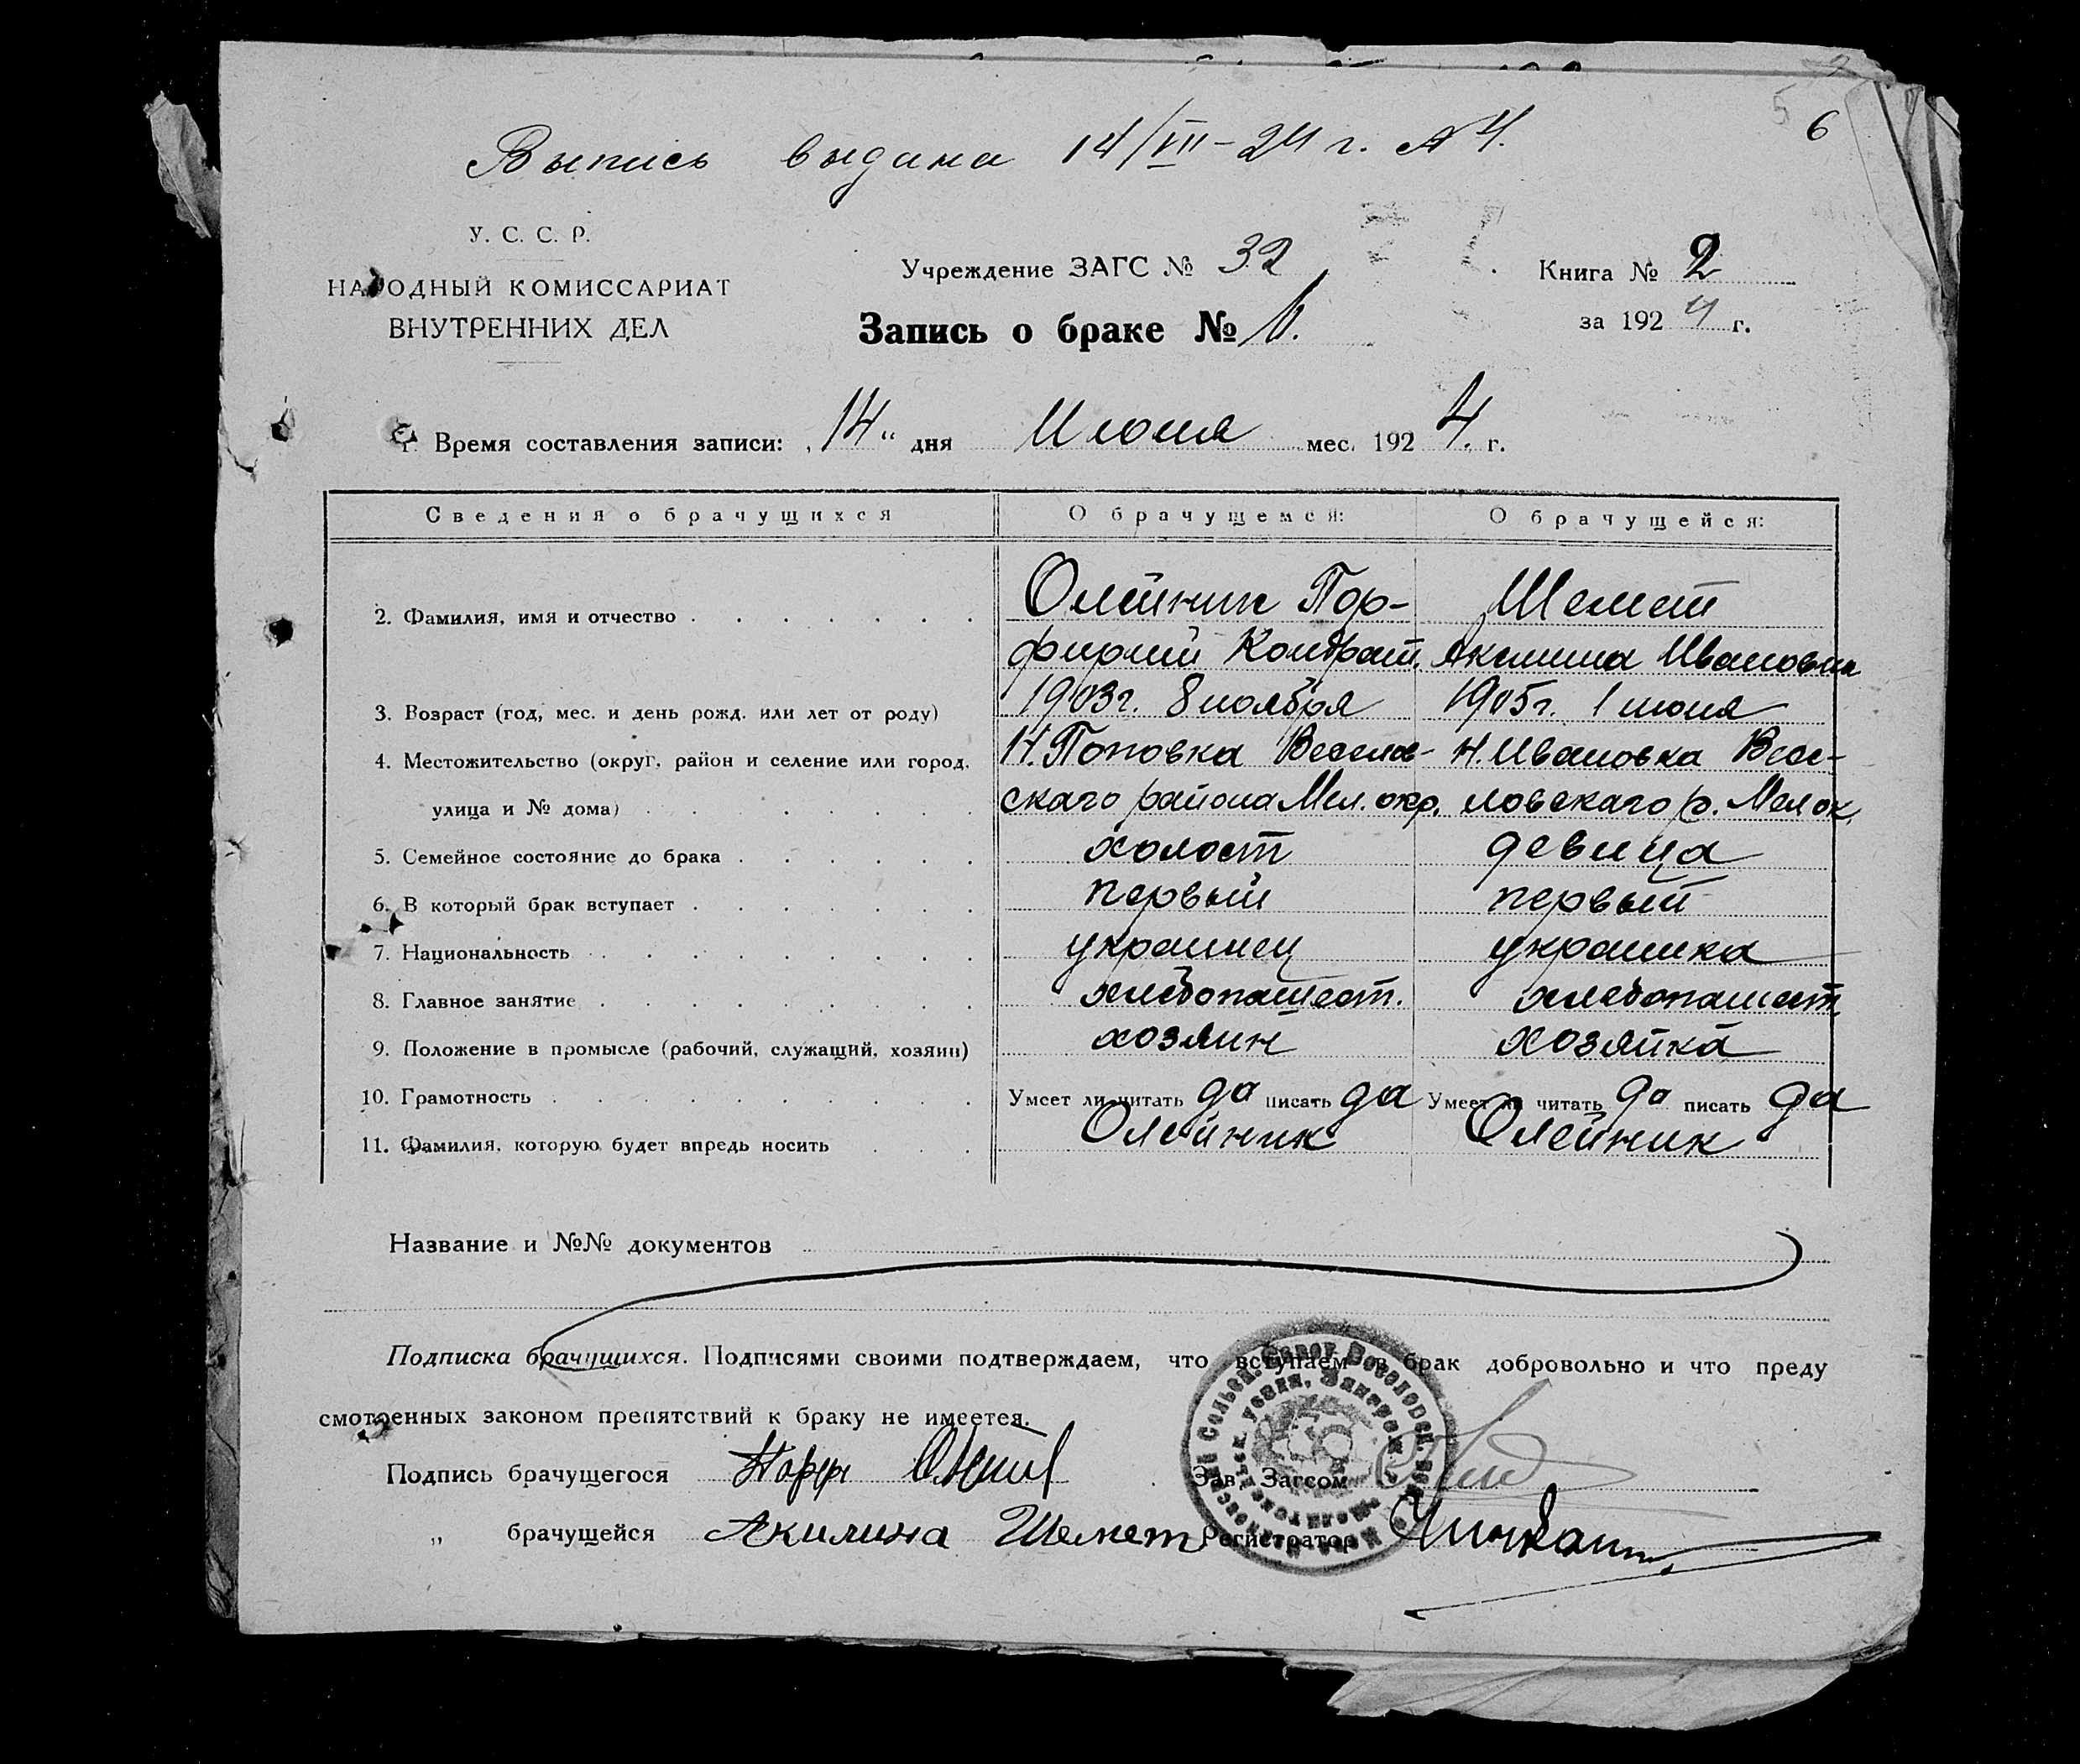 6
Выпись выдана 14/VII-24 г. №4.
У. С. С. Р.
НАРОДНЫЙ КОМИССАРИАТ
ВНУТРЕННИХ ДЕЛ
Учреждение ЗАГС № 32
Запись о браке № 6.
Книга № 2
за 1924 г.
1. Время составления записи: „14“ дня Июля мес. 1924. г.
Сведения о брачущихся О брачущемся: О брачущейся:
2. Фамилия, имя и отчество Олейник Пор- Шемет
фирий Кондрат. Акилина Ивановна
3. Возраст (год, мес. и день рожд. или лет от роду) 1903г. 8 ноября 1905г. 1 июня
4. Местожительство (округ, район и селение или город, Н. Поповка Веселов- Н. Ивановка Весе-
улица и № дома) скаго района Мел. окр. ловскаго р. Мел ок.
5. Семейное состояние до брака холост девица
6. В который брак вступает первый первый
7. Национальность украинец украинка
8. Главное занятие хлебопашест. хлебопашест.
9. Положение в промысле (рабочий, служащий, хозяин) хозяин хозяйка
10. Грамотность Умеет ли читать да писать да Умеет ли читать да писать да
11. Фамилия, которую будет впредь носить Олейник Олейник
Название и №№ документов
Подписка брачущихся. Подписями своими подтверждаем, что вступаем в брак добровольно и что преду
смотренных законом препятствий к браку не имеется.
Подпись брачущегося Порф Олейник Зав. Загсом
„ брачущейся Акилина Шемет Регистратор